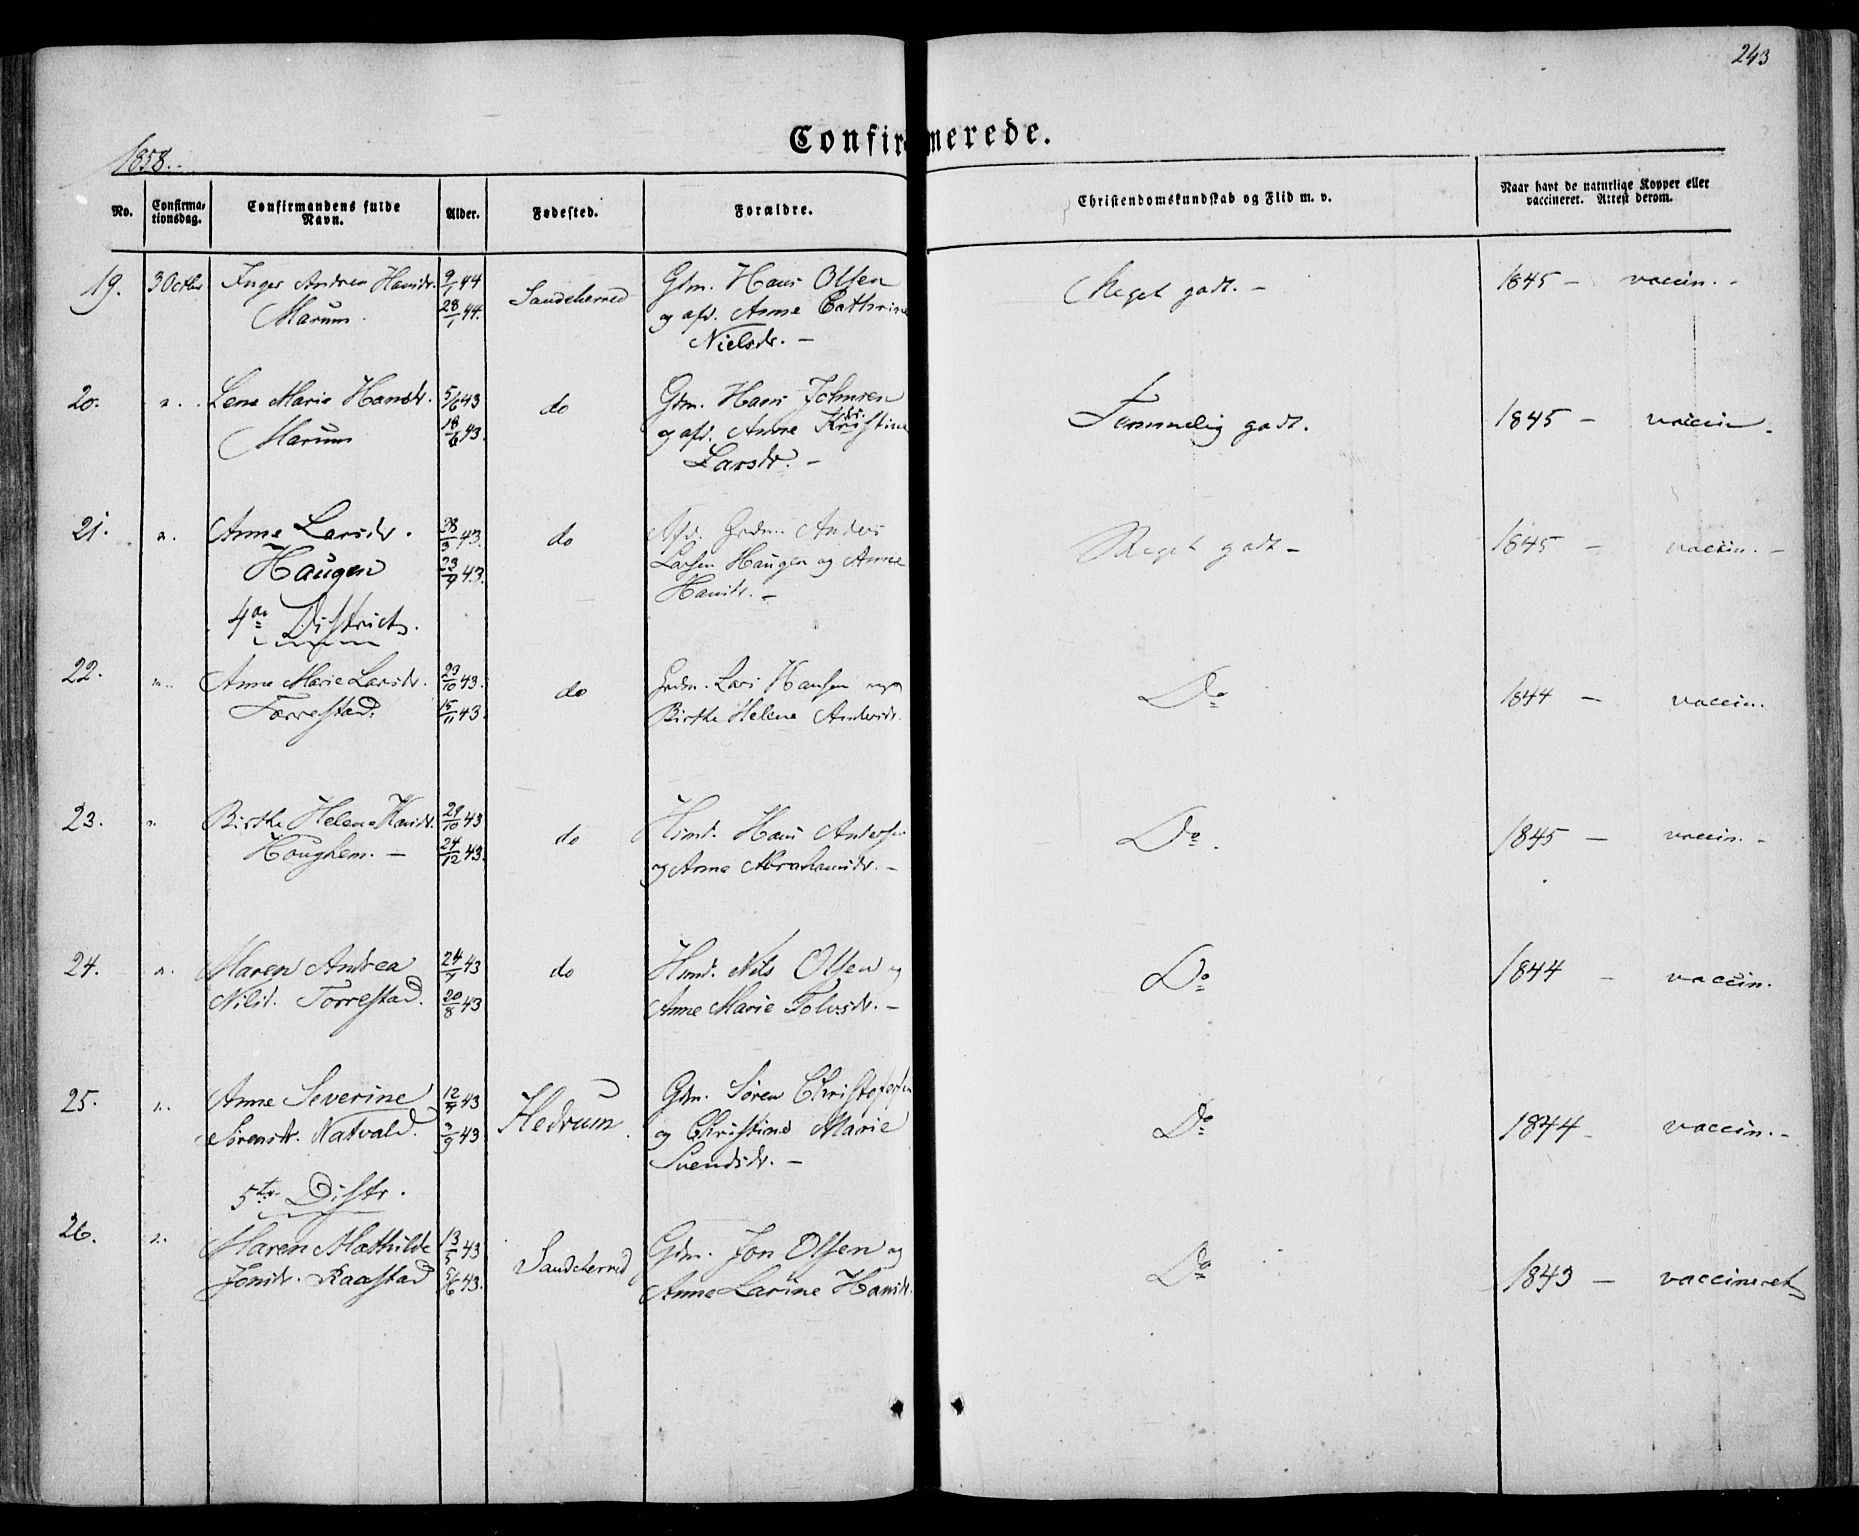 243
Confirmerede.
1858.
No. Confirma-tionsdag. Confirmandens fulde Navn. Alder. Fødested. Forældre. Christendomskundskab og Flid m. v. Naar havt de naturlige Kopper eller vaccineret. Attest derom.
19. 3 Octbr Inger Andrea Hansdr. 9/1 44 Sandeherred Gdm. Hans Olsen Meget godt. – 1845 – vaccin. -
Marum. 28/1 44. og afd. Anne Cathrine
Nielsdr. –
20. ". Lene Marie Hansdr. 5/6 43 do Gdm. Hans Johnsen Temmelig godt. 1845 – vaccin.
Marum 18/6 43. og afd. Anne Kristine
Larsdr. –
21. ". Anne Larsdr. 28/3 43. do Afd. Grdm. Anders Meget godt – 1845 – vaccin. –
Haugen 23/4 43. Larsen Haugen og Anne
Hansdr. –
4de Districts.
22. ". Anne Marie Larsdr. 23/10 43. do Grdm. Lars Hansen og Do 1844 – vaccin.
Torrestad. 15/11 43. Birthe Helene Andersdr.
23. " Birthe Helene Hansdr. 29/10 43 do Hmd. Hans Andersen Do. 1845 – vaccin. -
Haughem. – 24/12 43. og Anne Abrahamsdr. –
24. ". Maren Andrea 24/7 43 do Hmd. Nils Olsen og Do 1844 – vaccin.
Nilsd. Torrestad. 20/8 43 Anne Marie Tolvsdr. –
25. ". Anne Severine 12/7 43 Hedrum. Gdm. Søren Christofersen Do 1844 – vaccin. -
Sørensdr. Natvald. 3/9 43 og Christine Marie
Svendsdr. –
5te Distr.
26. ". Maren Mathilde 13/5 43 Sandeherred Gdm. Jon Olsen og Do 1843 – vaccineret
Jonsdr. Raastad 5/6 43. Anne Larine Hansdr.